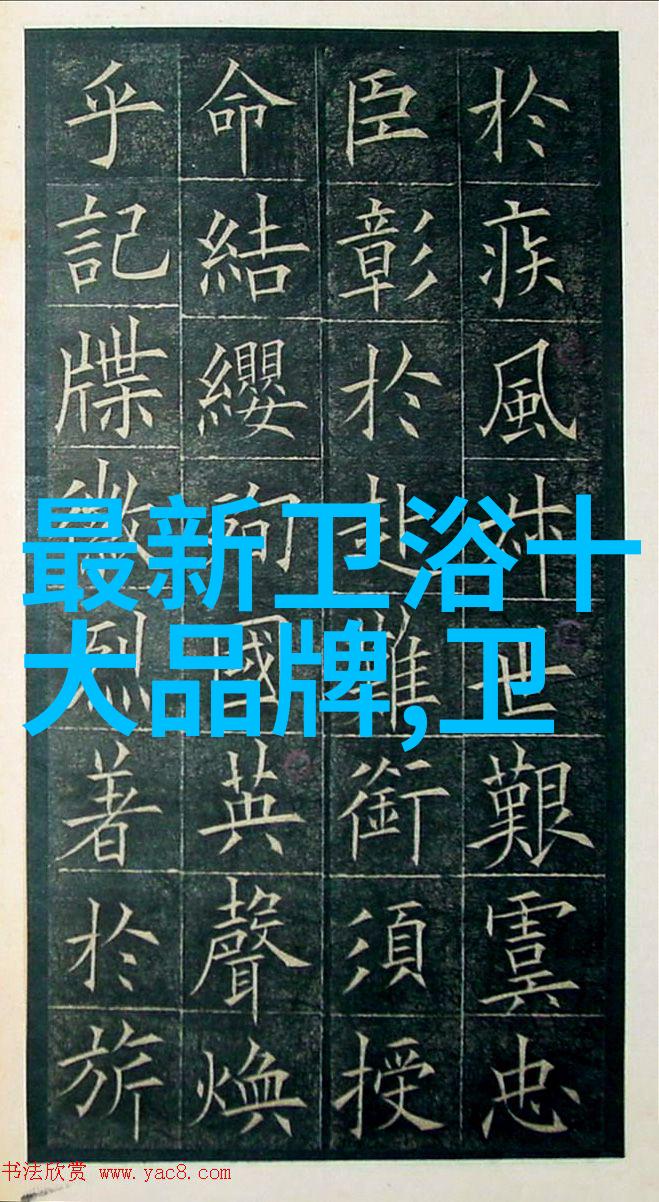 於疾風叔世艱虞忠
臣彰於赴難銜須授
命結纓殉國英聲煥
乎記牒徽烈著於旂
最新卫浴十
大品牌,卫
书法欣赏 www.yac8.com